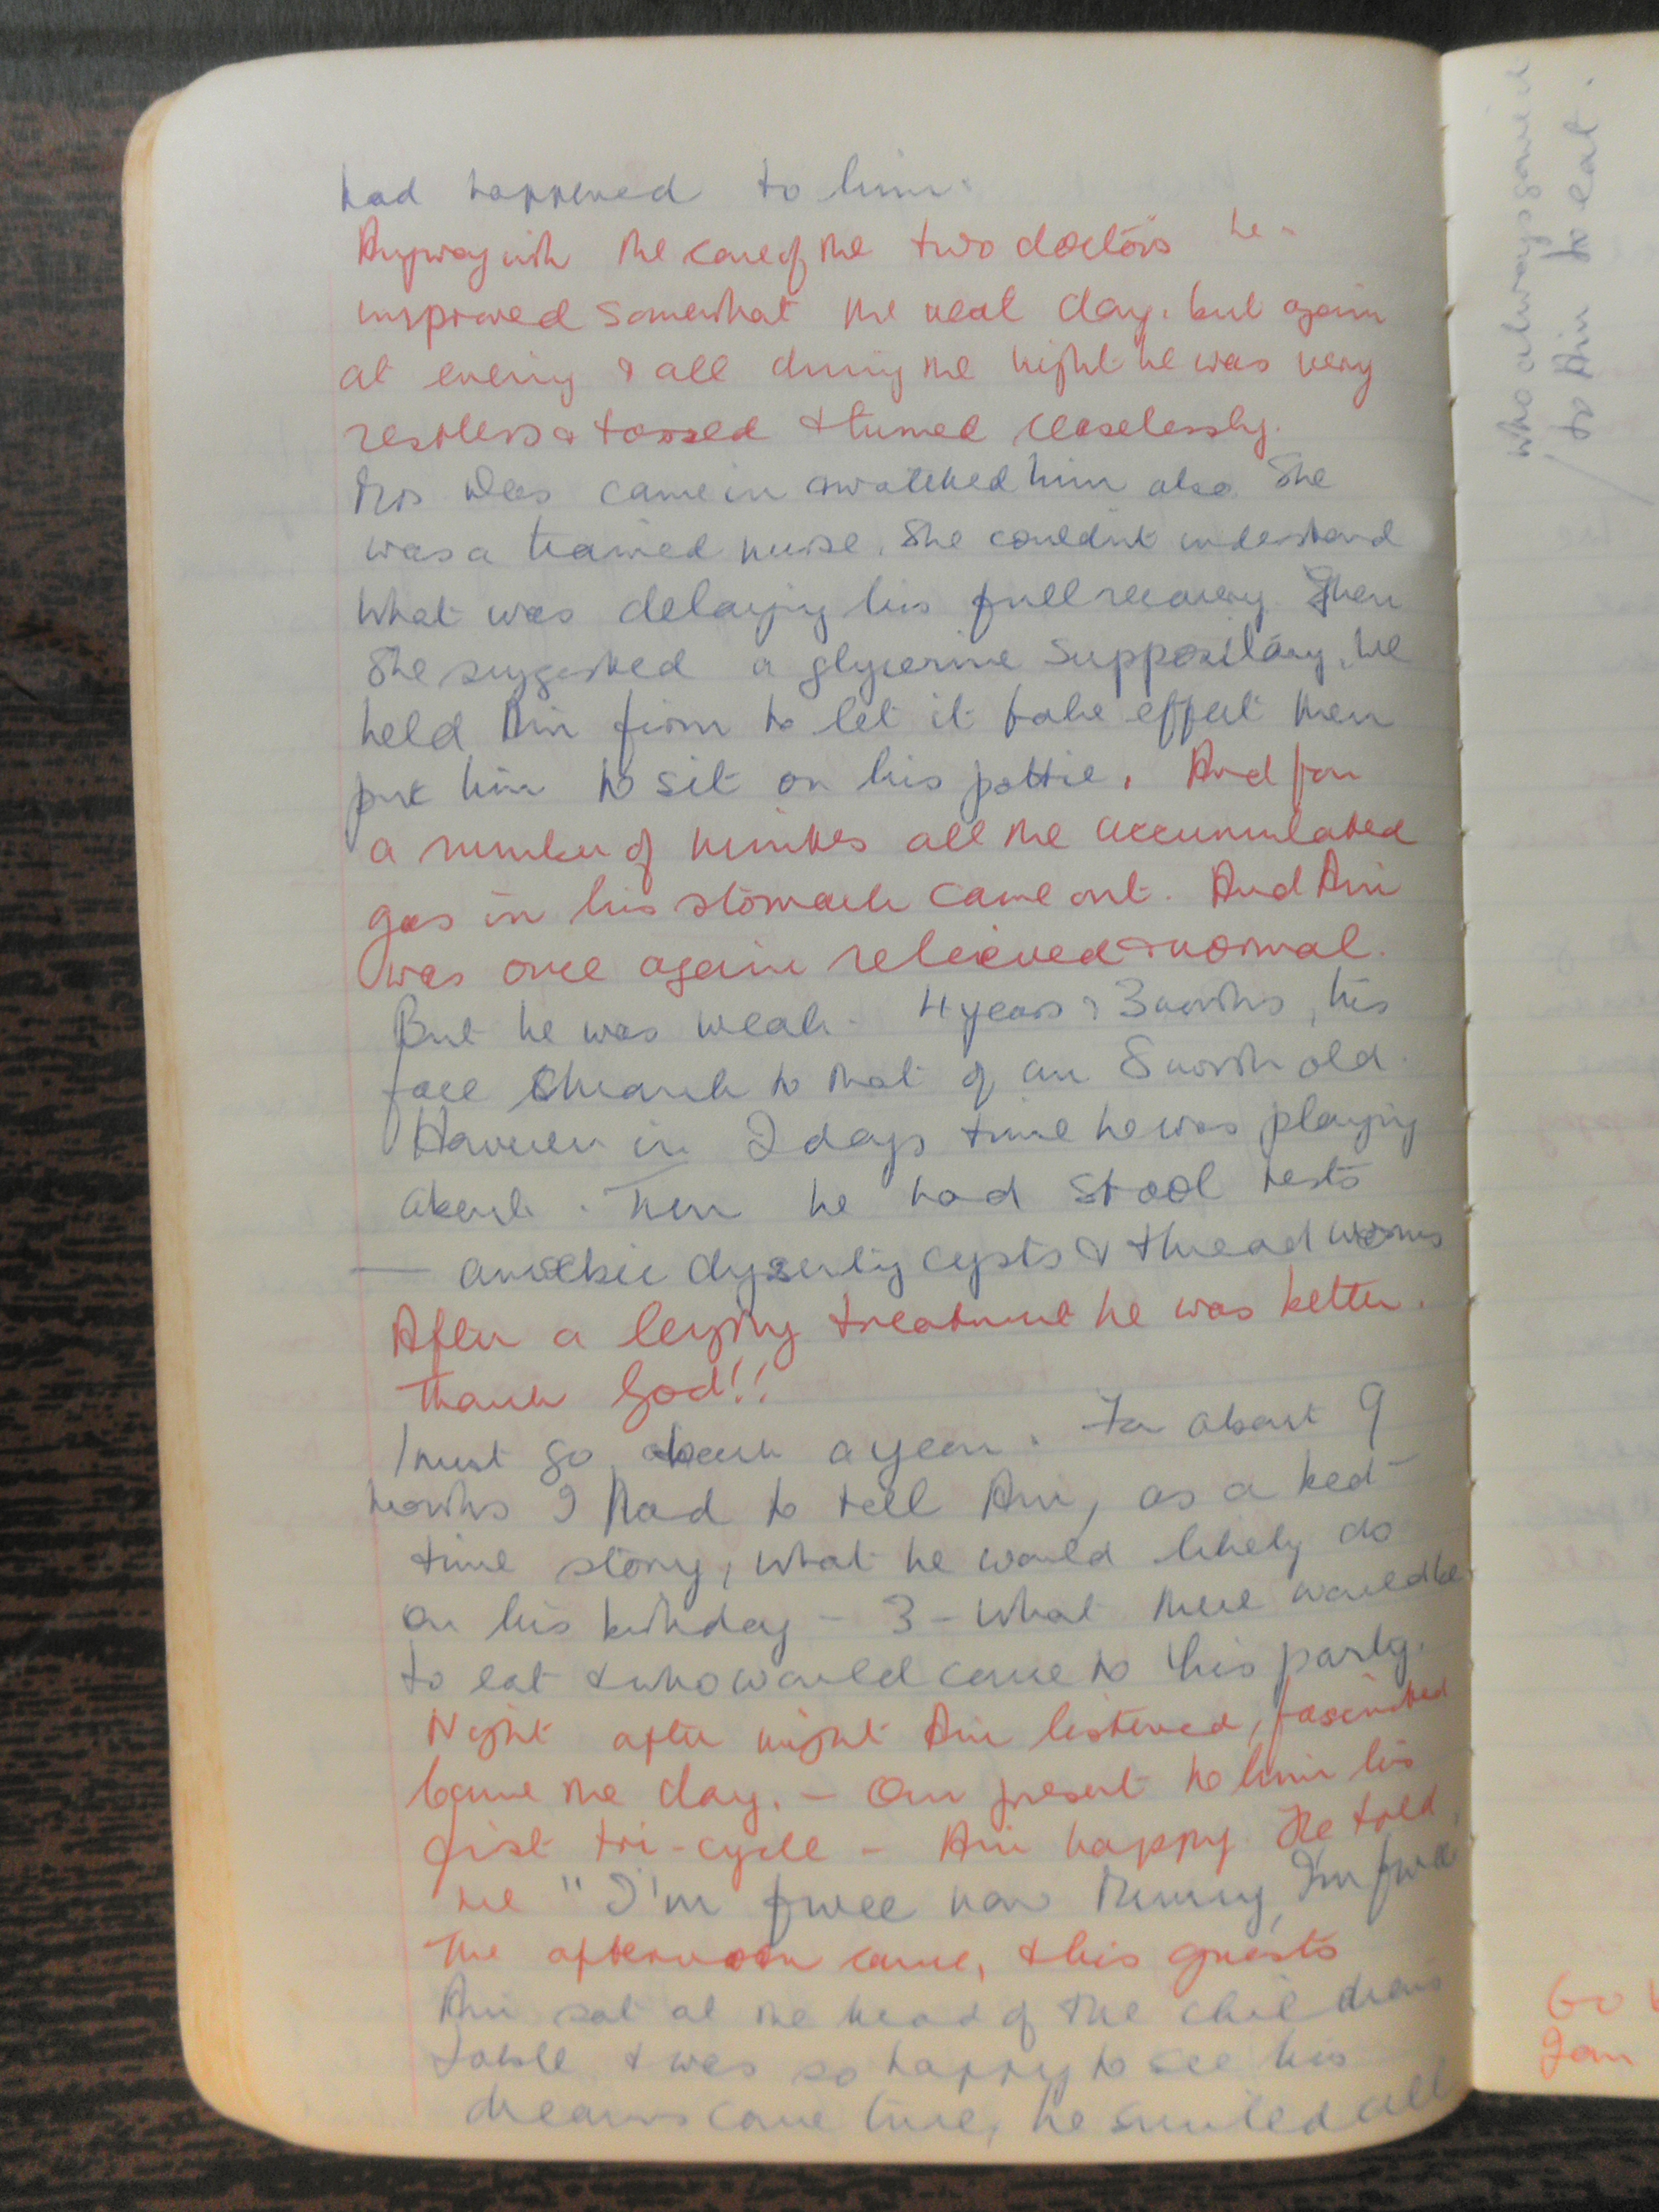 had happened to him.
Anyway with the care of the two doctors he
improved somewhat the next day. but again
at evening & all during the night he was very
restless & tossed & turned ceaselessly.
Mrs came in & watched him also. She
was a trained nurse. She couldn't understand
what was delaying his full recovery. Then
she suggested a glycerine suppository. We
held him firm to let it take effect then
put him to sit on his pottie. And for
a number of minutes all the accumulated
gas in his stomach came out. And
was once again relieved & normal.
But he was weak - 4 years & 3 months, his
face shrank to that of an 8 month old.
However in 2 days time he was playing
about. Then he had stool tests
— amoebic dysentry cysts & thread worms
After a lengthy treatment he was better.
Thank God!!
I must go back a year. For about 9
months I had to tell , as a bed
time story, what he would likely do
on his birthday - 3 - what there would be
to eat & who would come to his party.
Night after night listened, fascinated
Came the day. - Our present to him his
first tri-cycle - happy. He told
me "I'm fwee now Mummy, I'm fwee
The afternoon came, & his guests
sat at the head of the childrens
table & was so happy to see his
dreams come true, he smiled all
who always gave it
to to eat.
Go